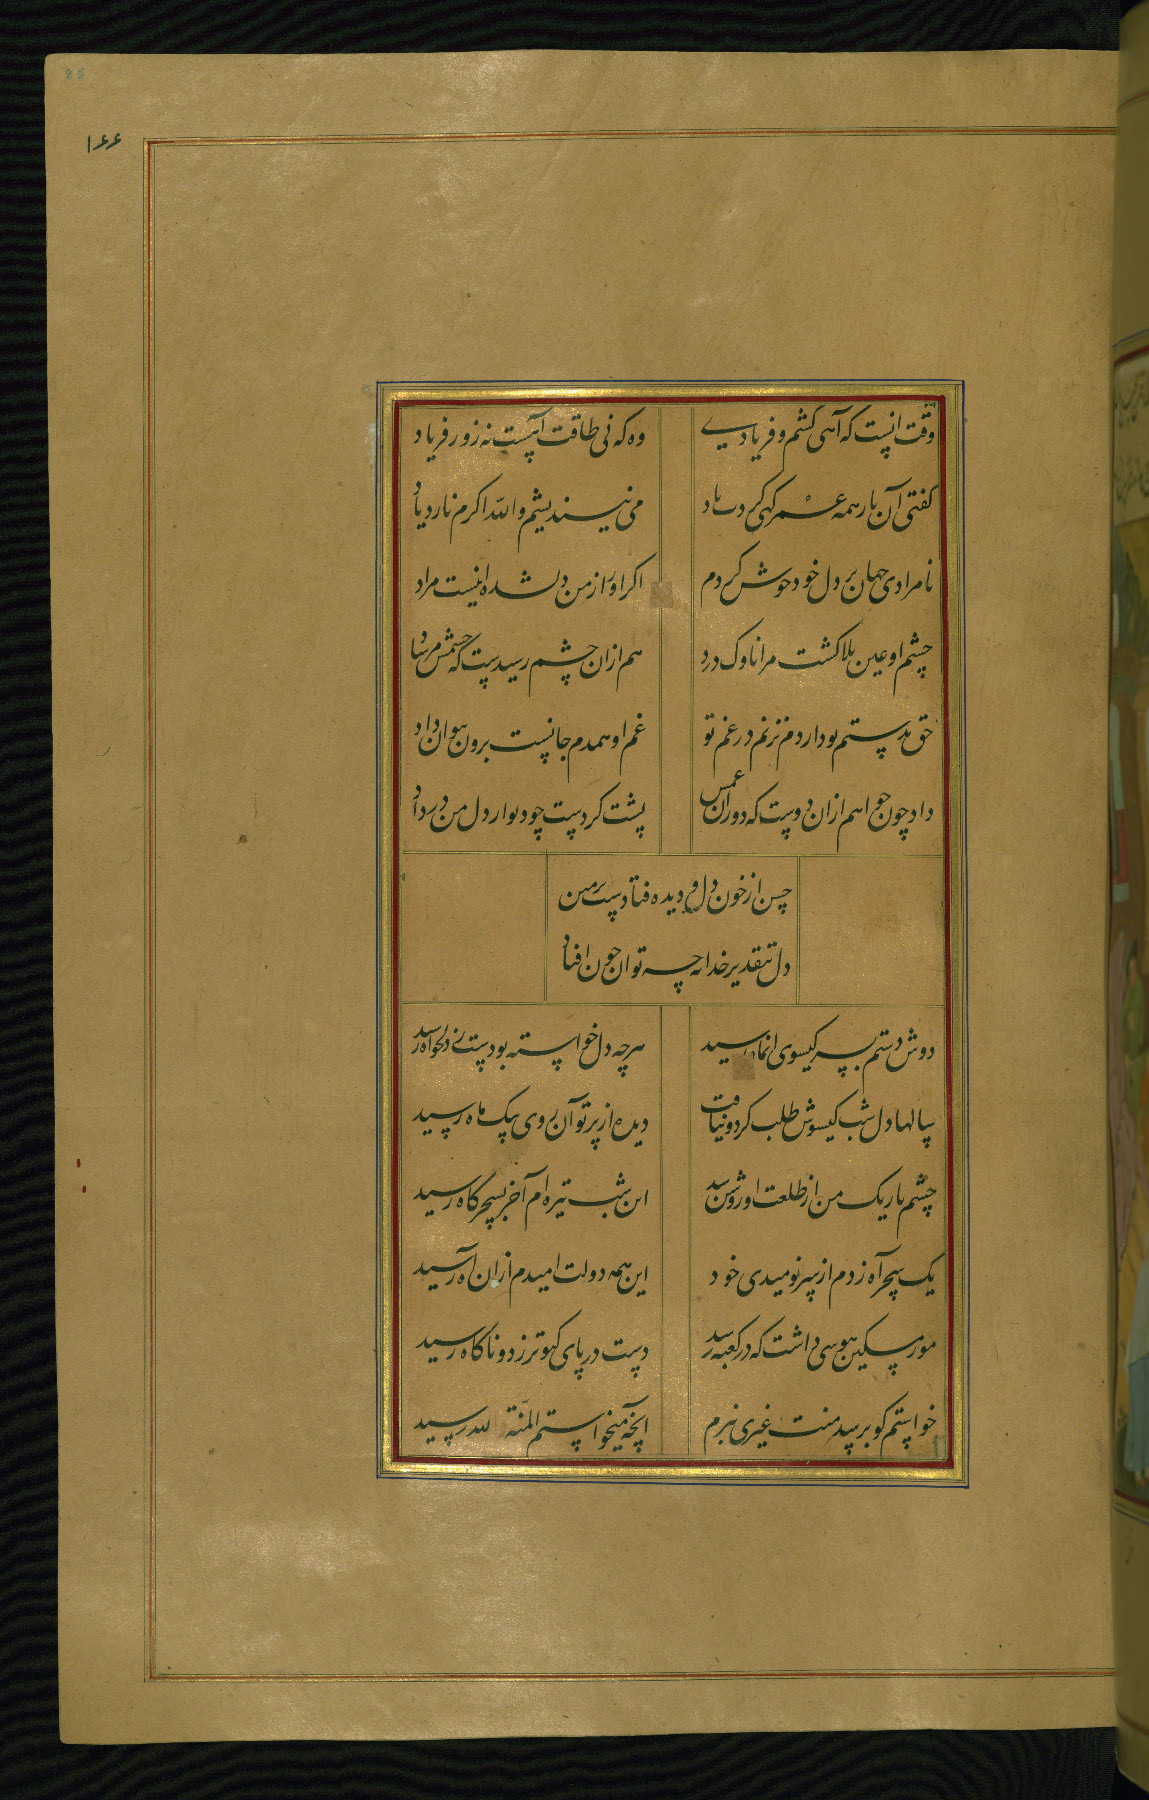 ۱۶۶
وقت انست که آهی کشم و فریادی
وه که نی طاقت آنست نه زور فریاد
کفتی آن یار همه عمر کهی کردت یاد
می نیندیشم والله اکرم نارد یاد
نامرادی جهان بر دل خود خوش کردم
اکر او را از من دلشده اینست مراد
چشم او عین بلا کشت مرا ناوک درد
هم ازان چشم رسیدست که چشمش مرساد
حق بدستم بود ار دم نزنم در غم تو
غم او همدم جانست برون نتوان داد
داد چون خواهم ازان دوست که دوران غمش
پشت کردست چو دیوار دل من در داد
حسن از خون دل و دیده فتادست برمین
دل بتقدیر خدا نه چه توان چون افتاد
دوش دستم بسر کیسوی انماه رسید
هرچه دل خواسته بودست نی دلخواه رسید
سالها دل شب کیسوش طلب کرد و نیافت
دیده از پرتو آن روی بیک ماه رسید
چشم تاریک من از طلعت او روشن شد
این شب تیره ام آخر بسحرکاه رسید
یک سحر آه زدم از سر نومیدی خود
این همه دولت امیدم ازان آه رسید
مور مسکین هوسی داشت که در کعبه رسد
دست در پای کبوتر زد و ناکاه رسید
خواستم کو برسد منت غیری نبرم
انچه میخواستم المنة لله رسید